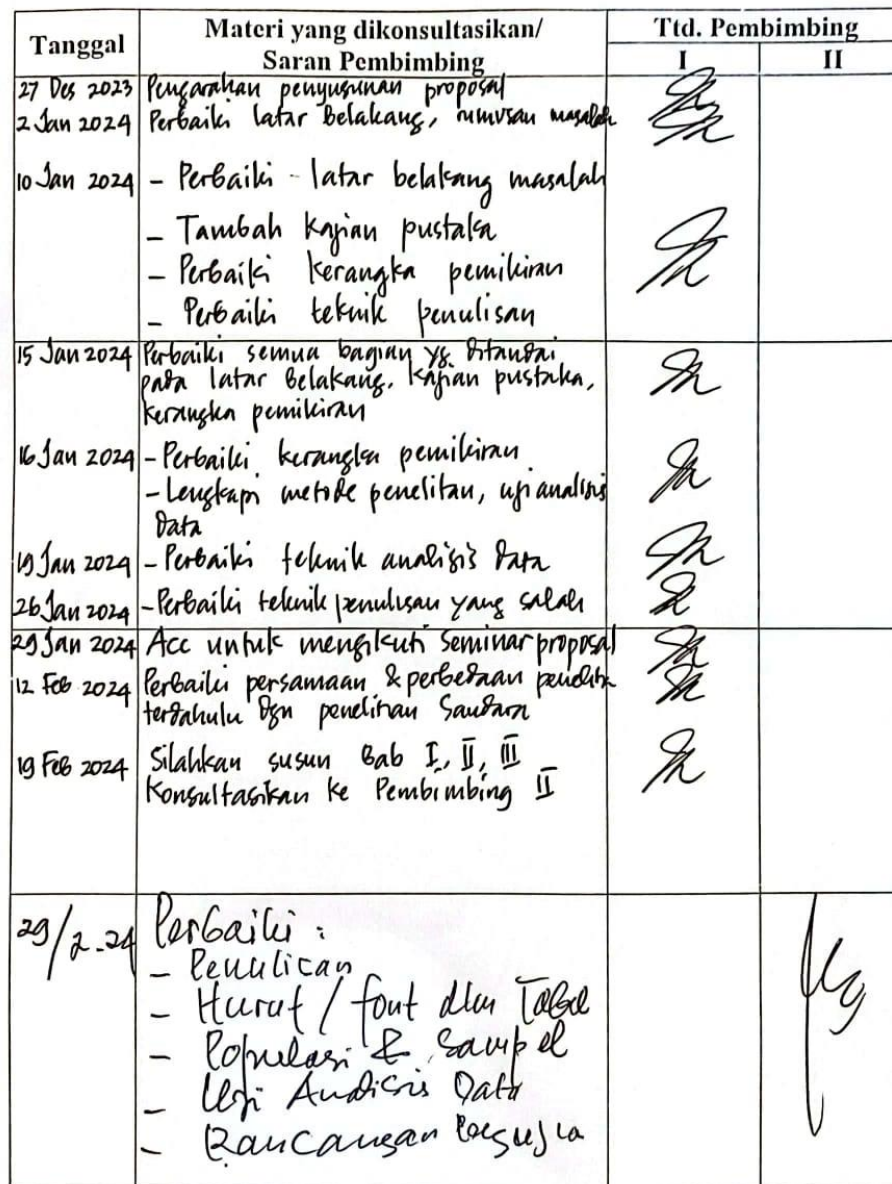 Tanggal Materi yang dikonsultasikan/ Ttd. Pembimbing
Saran Pembimbing I II
27 Des 2023 Pengarahan penyusunan proposal
2 Jan 2024 Perbaiki latar belakang, rumusan masalah
10 Jan 2024 - Perbaiki latar belakang masalah
- Tambah Kajian pustaka
- Perbaiki kerangka pemikiran
- Perbaiki teknik penulisan
15 Jan 2024 Perbaiki semua bagian yg ditandai
pada latar belakang, kajian pustaka,
kerangka pemikiran
16 Jan 2024 - Perbaiki kerangka pemikiran
- Lengkapi metode penelitan, uji analisis
data
19 Jan 2024 - Perbaiki teknik analisis data
26 Jan 2024 - Perbaiki teknik penulisan yang salah
29 Jan 2024 Acc untuk mengikuti seminar proposal
12 Feb 2024 Perbaiki persamaan & perbedaan
terdahulu dgn penelitian Saudara
19 Feb 2024 Silahkan susun Bab I, II, III
Konsultasikan ke Pembimbing II
29/2-24 Perbaiki :
- Penulisan
- Huruf / font dlm Tabel
- Populasi & Sampel
- Uji Analisis Data
- Rancangan